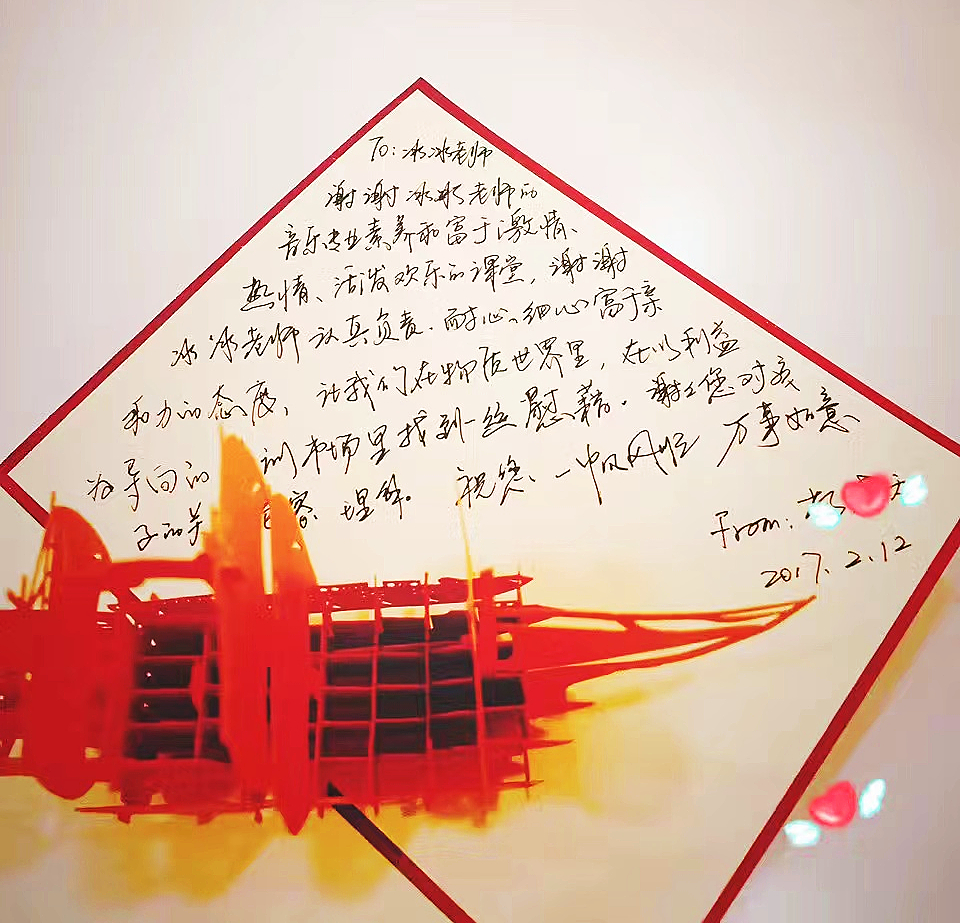 To: 冰冰老师
谢谢冰冰老师的
音乐专业素养和富于激情、
热情、活泼欢乐的课堂，谢谢
冰冰老师认真负责、耐心、细心富于亲
和力的态度，让我们在物质世界里，在以利益
为导向的 训市场里找到一丝慰藉。谢谢您对孩
子的关 理解。祝您一帆风顺 万事如意
From:
2017.2.12